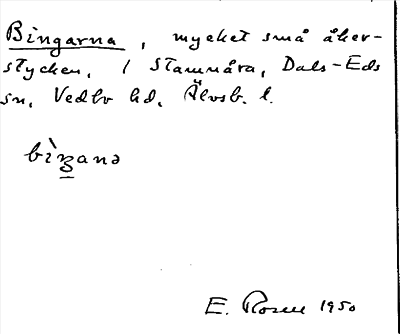 Bingarna, mycket små åker-
stycken, i Stamnåra, Dals-Eds
sn, Vedbo hd, Älvsb. l.
bìŋanə
E. Rosell 1950